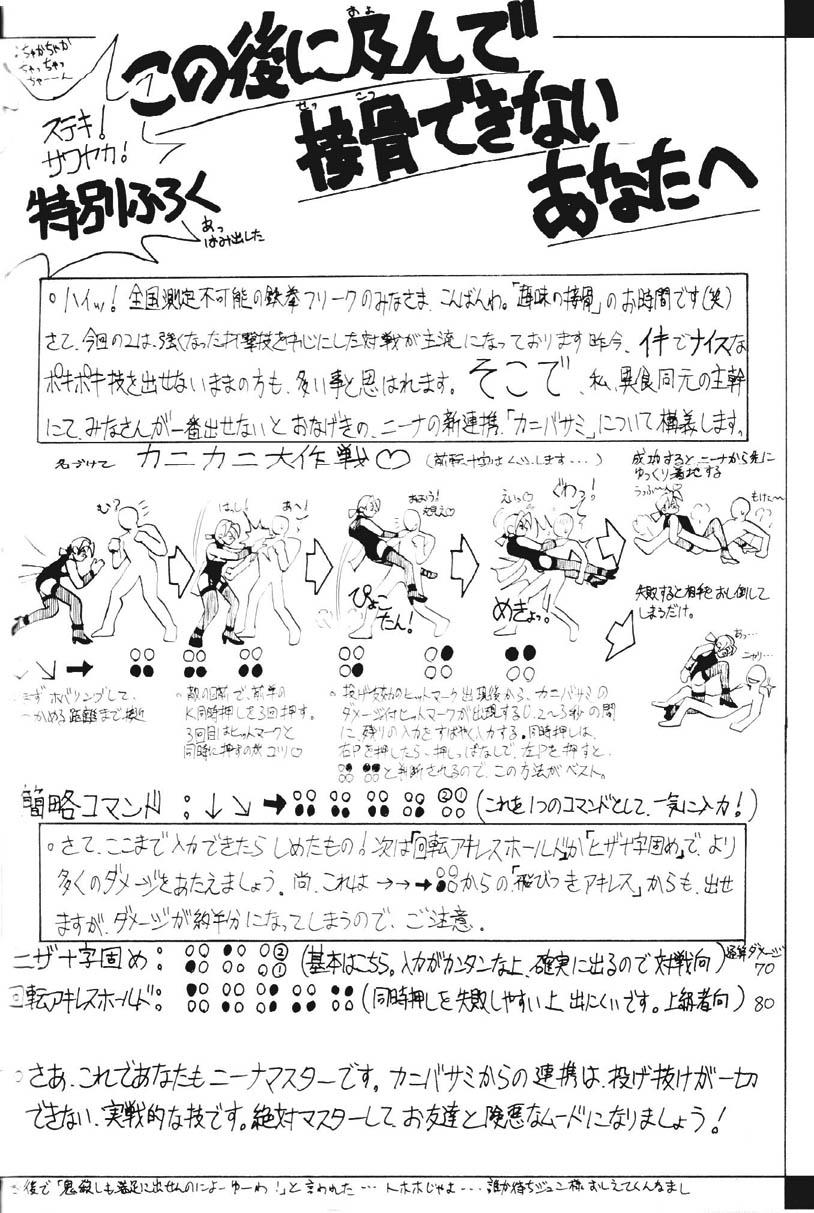 ちゃかちゃか
ちゃっちゃっ
ちゃーーん
この後に及んで
およ
接骨できない
せっ こつ
あなたへ
ステキ!
サワヤカ!
特別ふろく
あっ
はみ出した
○ハイッ! 全国測定不可能の鉄拳フリークのみなさま、こんばんわ。「趣味の接骨」のお時間です(笑)
さて、今回の2は、強くなった打撃技を中心にした対戦が主流になっております昨今、イキでナイスな
ポキポキ技を出せないままの方も、多い事と思はれます。そこで、私、異食同元の主幹
にて、みなさんが一番出せないとおなげきの、ニーナの新連携、「カニバサミ」について構義します。
名づけて カニカニ大作戦♡ (前転十字はムシします・・・)
成功すると、ニーナから先に
ゆっくり着地する
うっふ~ん
もけ~
??
む?
はし!
あ~!
えいっ♡
ぐわっ!
ぴょこ
たん!
めきょっ。
失敗すると相手をおし倒して
しまうだけ。
あっ…
ニヤリ…
↓ ↘ ➡
まずホバリングして、
つかめる距離まで接近
○敵の目前で、前半の
K同時押しを3回押す。
3回目はヒットマークと
同時に押すのがコツ♡
○投げ成功のヒットマーク出現後から、カニバサミの
ダメージ付ヒットマークが出現する0.2~3秒の間
に、残りの入力をすばやく入力する。同時押しは、
右Pを押したら、押しっぱなしで、左Pを押すと、
○● ●●と判断されるので、この方法がベスト。
簡略コマンド:↓↘➡ ○○●● ○○●● ○○●● ○○●● ②①●● (これを1つのコマンドとして、一気に入力!)
○さて、ここまで入力できたらしめたもの!次は「回転アキレスホールド」か「ヒザ十字固め」で、より
多くのダメージをあたえましょう。尚、これは→→➡からの「飛びつきアキレス」からも、出せ
ますが、ダメージが約半分になってしまうので、ご注意。
ヒザ十字固め: (基本はこちら。入力がカンタンな上、確実に出るので対戦向)
ダメージ
70
回転アキレスホールド: (同時押しを失敗しやすい上、出にくいです。上級者向) 80
○さあ、これであなたもニーナマスターです。カニバサミからの連携は、投げ抜けが一切
できない、実戦的な技です。絶対マスターして、お友達と険悪なムードになりましょう!
後で「鬼殺しも満足に出せんのによーゆーわ!」と言われた…トホホじゃよ…誰か待ちジュン様おしえてくんなまし